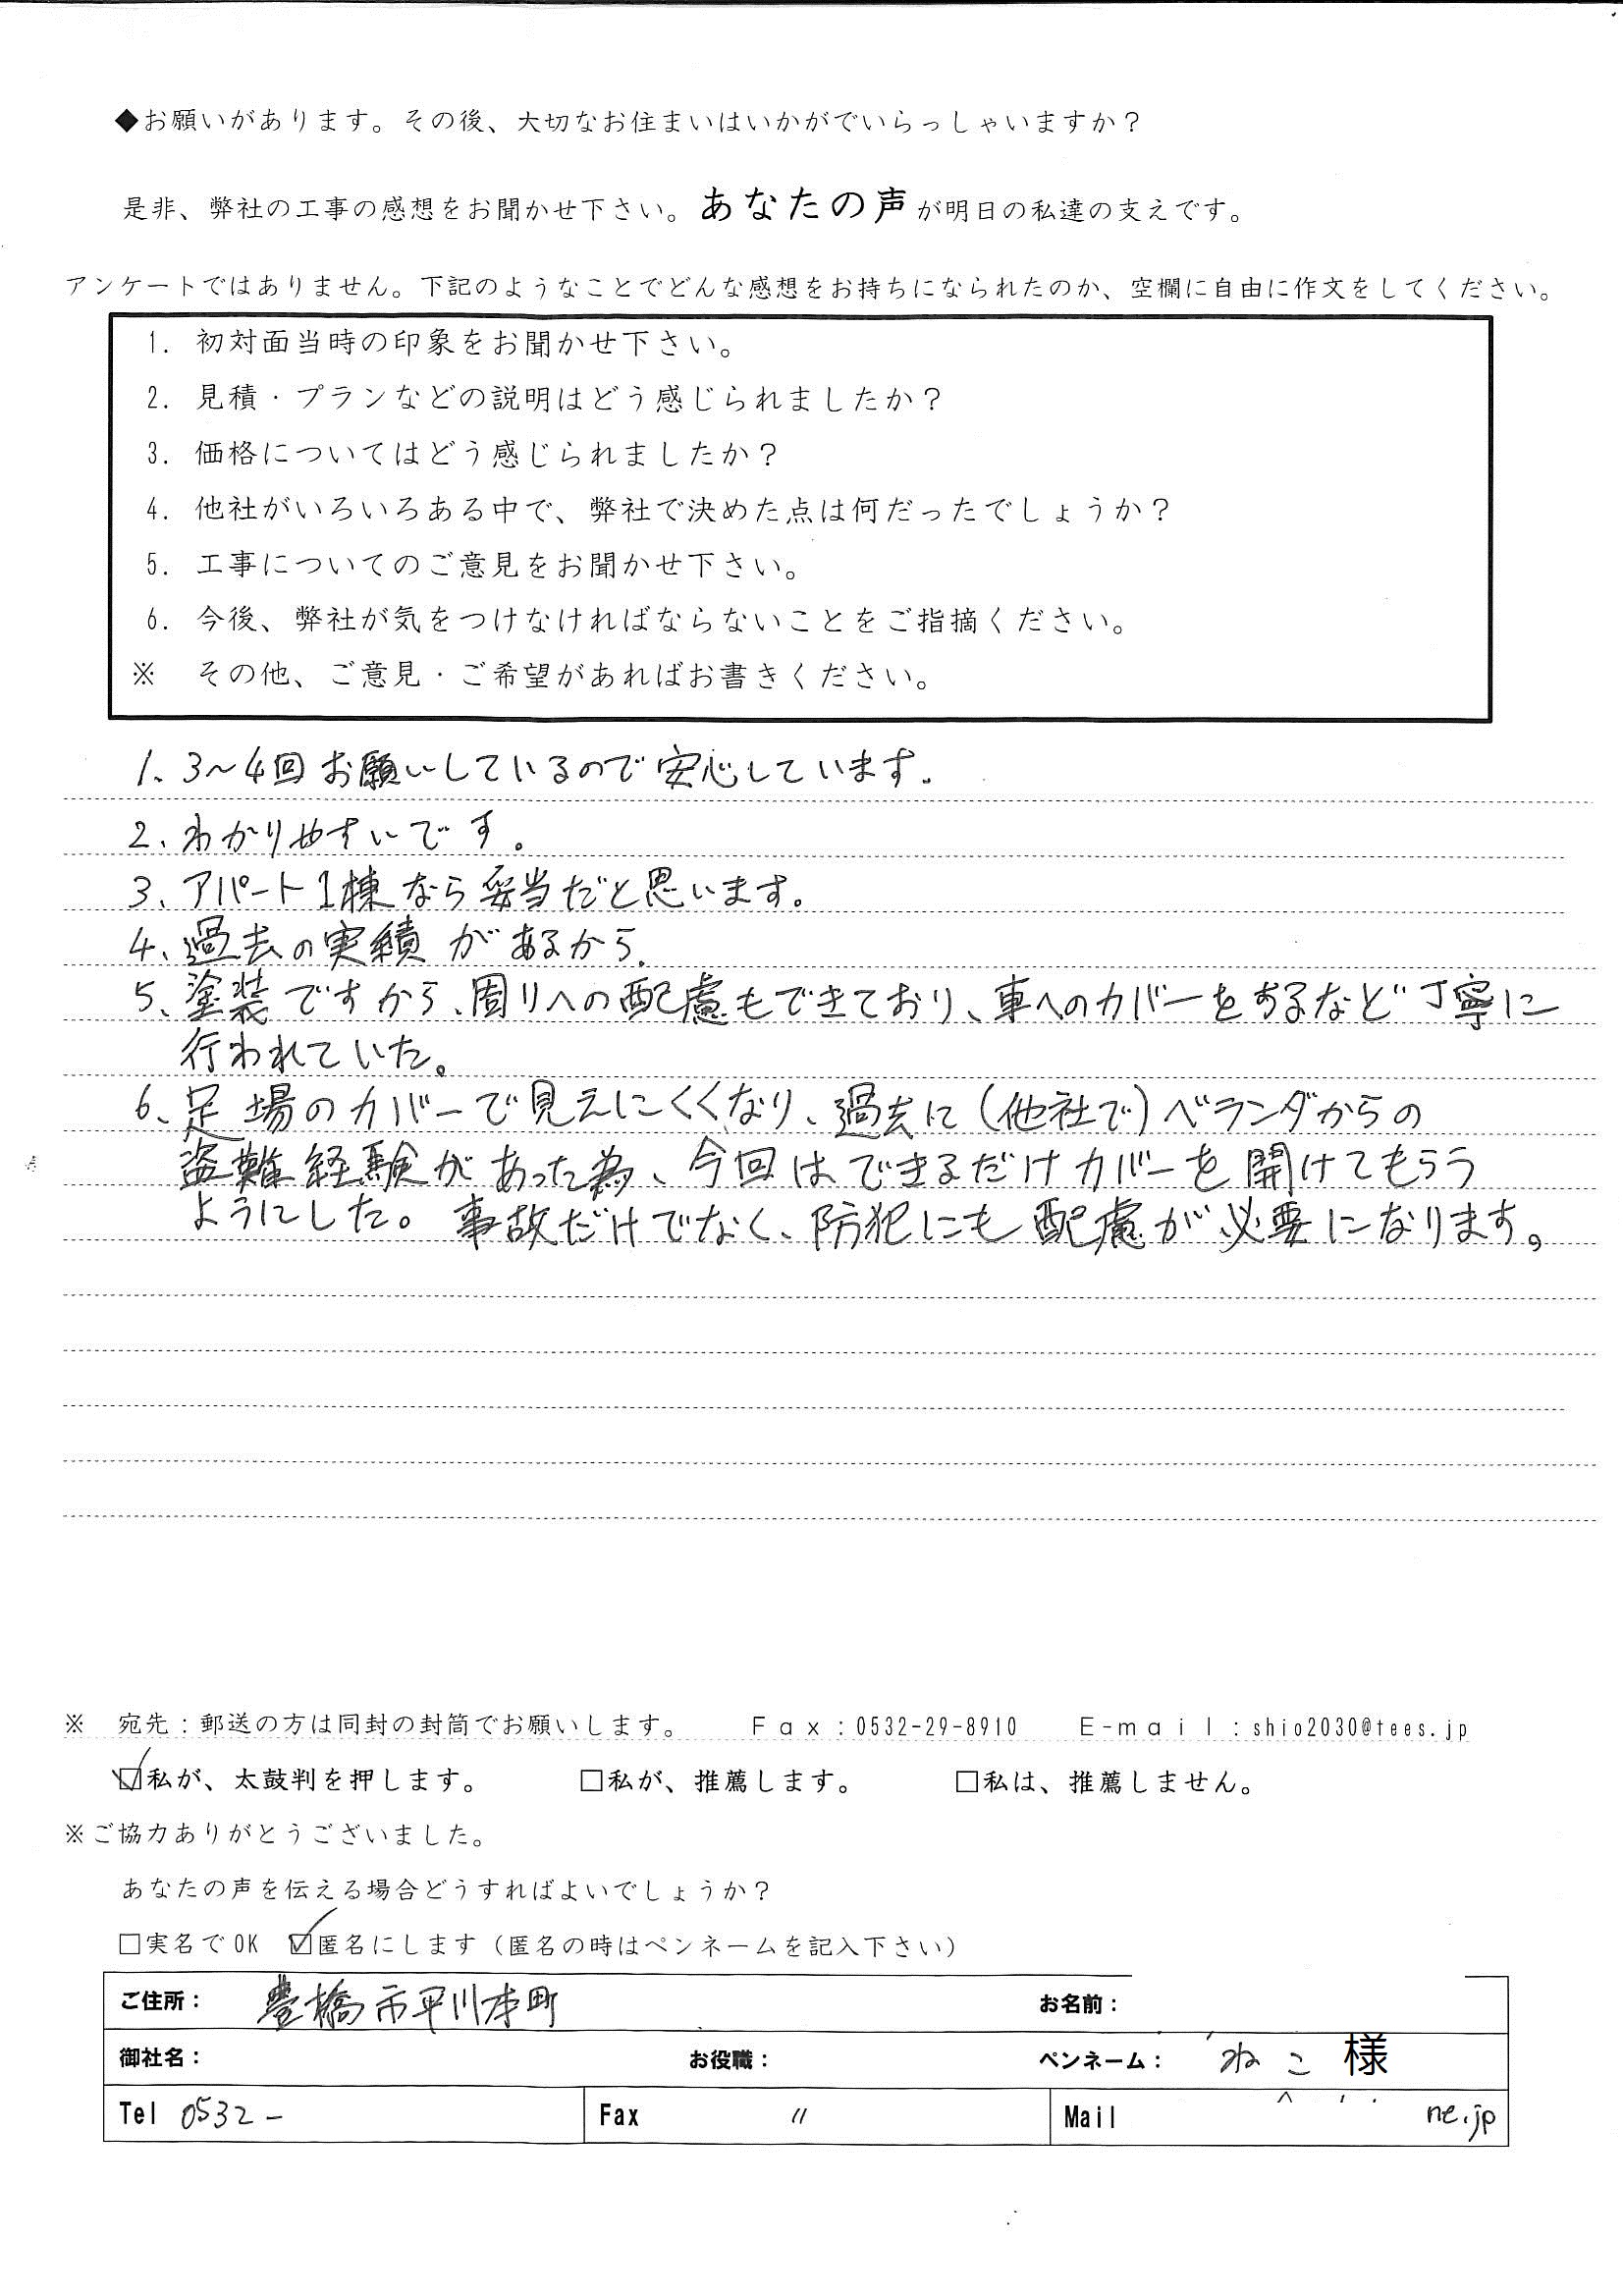 ◆お願いがあります。その後、大切なお住まいはいかがでいらっしゃいますか？
是非、弊社の工事の感想をお聞かせ下さい。あなたの声が明日の私達の支えです。
アンケートではありません。下記のようなことでどんな感想をお持ちになられたのか、空欄に自由に作文をしてください。
1. 初対面当時の印象をお聞かせ下さい。
2. 見積・プランなどの説明はどう感じられましたか？
3. 価格についてはどう感じられましたか？
4. 他社がいろいろある中で、弊社で決めた点は何だったでしょうか？
5. 工事についてのご意見をお聞かせ下さい。
6. 今後、弊社が気をつけなければならないことをご指摘ください。
※ その他、ご意見・ご希望があればお書きください。
1、3〜4回お願いしているので安心しています。
2、わかりやすいです。
3、アパート1棟なら妥当だと思います。
4、過去の実績があるから。
5、塗装ですから、周りへの配慮もできており、車へのカバーをするなど丁寧に
行われていた。
6、足場のカバーで見えにくくなり、過去に(他社で)ベランダからの
盗難経験があった為、今回はできるだけカバーを開けてもらう
ようにした。事故だけでなく、防犯にも配慮が必要になります。
※ 宛先：郵送の方は同封の封筒でお願いします。 Fax：0532-29-8910 E-mail：shio2030@tees.jp
☑私が、太鼓判を押します。 □私が、推薦します。 □私は、推薦しません。
※ご協力ありがとうございました。
あなたの声を伝える場合どうすればよいでしょうか？
□実名でOK ☑匿名にします（匿名の時はペンネームを記入下さい）
ご住所： 豊橋市平川本町 お名前：
御社名： お役職： ペンネーム： ねこ 様
Tel 0532- Fax 〃 Mail ne.jp